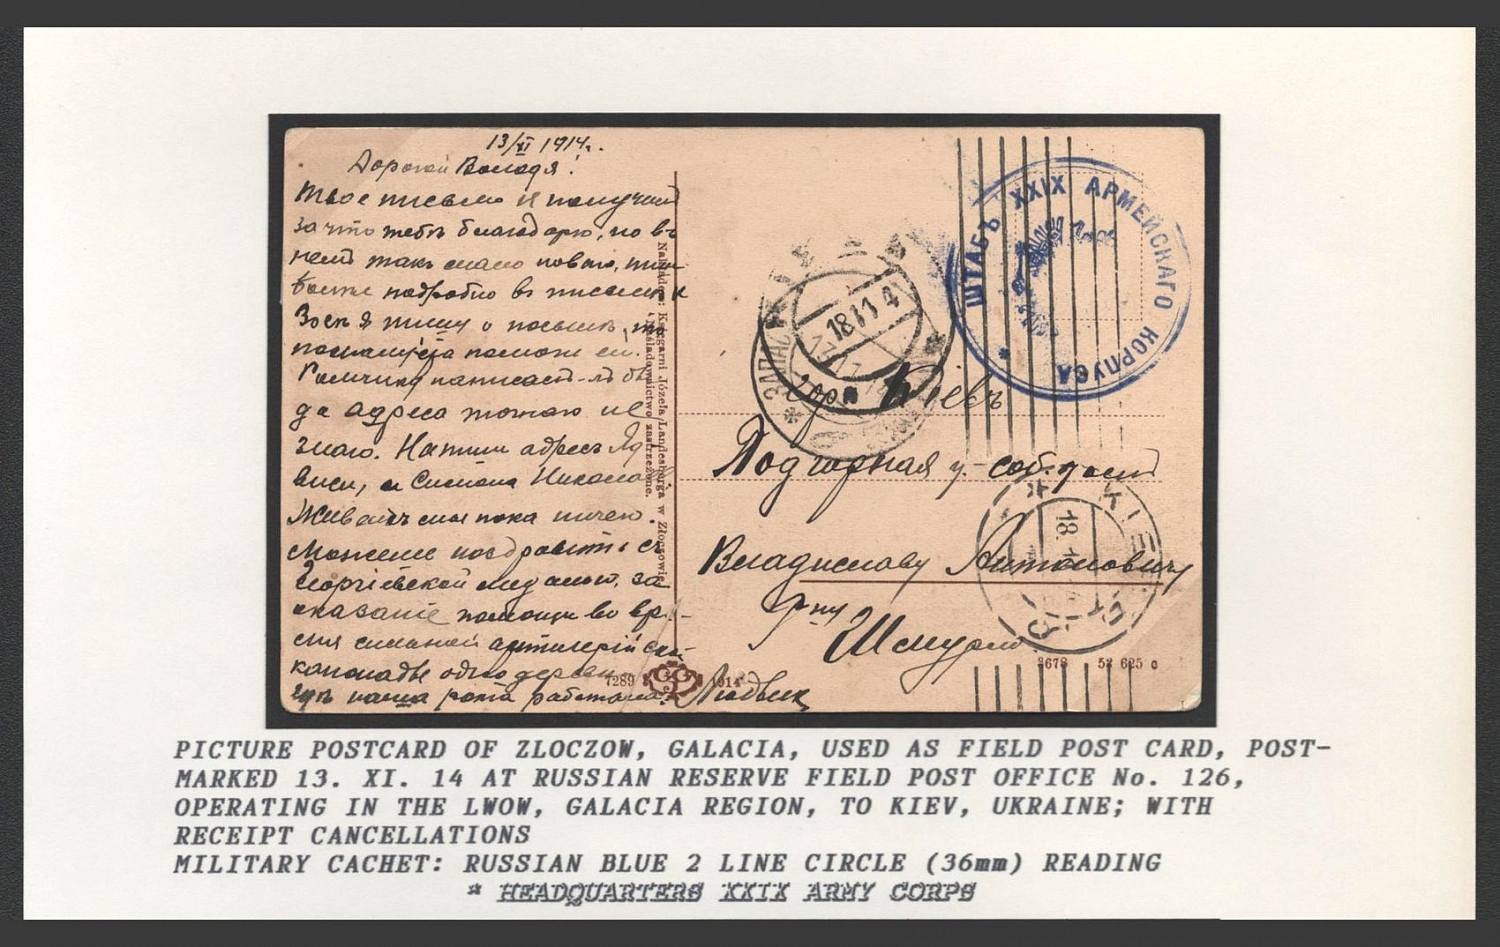 13/XI 1914г.
Дорогой Володя!
Твое письмо я получил
за что тебя благодарю, но въ
немъ такъ мало новаго, пиши
подробно въ письмахъ
Зось я пишу о посылкѣ,
помоги ей.
адреса точно не
знаю. Нашъ адресъ
Живемъ мы пока ничего.
Можете поздравить съ
Георгіевской медалью, за
оказаніе помощи во вре-
мя сильной артилерійской
канонады
гдѣ наша рота работала. Людвик
Nakładem: Księgarni Józefa Landesberga w Złoczowie.
Naśladownictwo zastrzeżone.
7289
1914
ЗАПАСН
18 11 4
ШТАБЪ XXIX АРМЕЙСКАГО КОРПУСА
гор. Кіевъ
Подгорная у. соб. дом
КІЕВЪ
18.
Владиславу Антоновичу
Г-ну
3678 52 625 c
PICTURE POSTCARD OF ZLOCZOW, GALACIA, USED AS FIELD POST CARD, POST-
MARKED 13. XI. 14 AT RUSSIAN RESERVE FIELD POST OFFICE No. 126,
OPERATING IN THE LWOW, GALACIA REGION, TO KIEV, UKRAINE; WITH
RECEIPT CANCELLATIONS
MILITARY CACHET: RUSSIAN BLUE 2 LINE CIRCLE (36mm) READING
* HEADQUARTERS XXIX ARMY CORPS